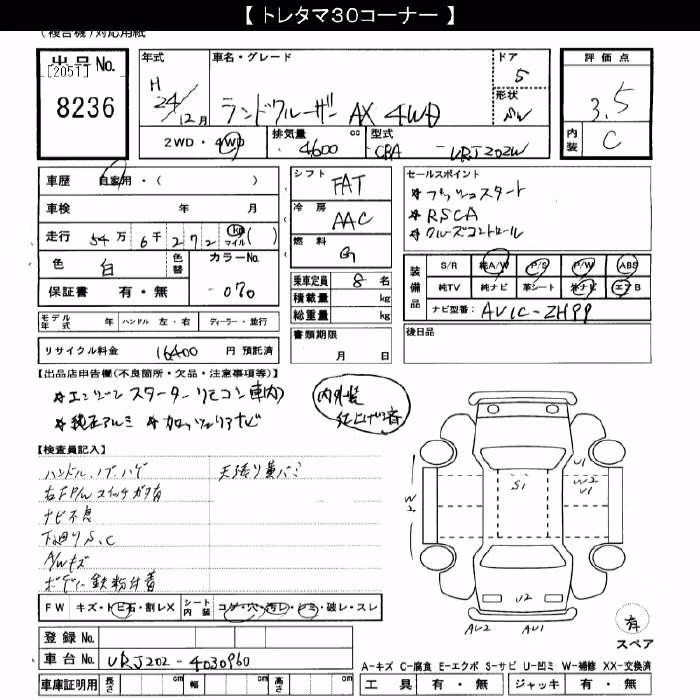 【 トレタマ30コーナー 】
(複合機)対応用紙
出品No.
[2051]
8236
年式
H 24/12月
車名・グレード
ランドクルーザー AX 4WD
ドア
5
形状
SW
評価点
3.5
内装
C
2WD・4WD
排気量
4600 cc
型式
CBA URJ202W
車歴 自家用・( )
車検 年 月
走行 54万6千272 km マイル ( )
色 白 色替 カラーNo. 070
保証書 有・無
モデル年式 年 ハンドル 左・右 ディーラー・並行
リサイクル料金 16400 円 預託済
シフト FAT
冷房 AAC
燃料 G
乗車定員 8名
積載量 kg
総重量 kg
書類期限
月 日
セールスポイント
*プッシュスタート
*RSCA
*クルーズコントロール
装備品
S/R 純A/W P/S P/W ABS
純TV 純ナビ 革シート 社ナビ エアB
ナビ型番: AVIC-ZH99
後日品
【出品店申告欄(不良箇所・欠品・注意事項等)】
*エンジンスターターリモコン車内
*純正アルミ *カロッツェリアナビ
内外装
仕上げ済
【検査員記入】
ハンドル、ノブハゲ
天張り黄バミ
右FP/WスイッチガタJ有
ナビ不良
下廻りS、C
A/Wキズ
ボディー鉄粉付着
FW キズ・トビ石・割レX シート内装 コゲ・穴・汚レ・シミ・破レ・スレ
登録No.
車台No. URJ202-4030960
車庫証明用 長さ cm 幅 cm 高さ cm
S1
U1
W2
U1
U2
AU2 AU1
有
スペア
A-キズ C-腐食 E-エクボ S-サビ U-凹ミ W-補修 XX-交換済
工具 有・無 ジャッキ 有・無